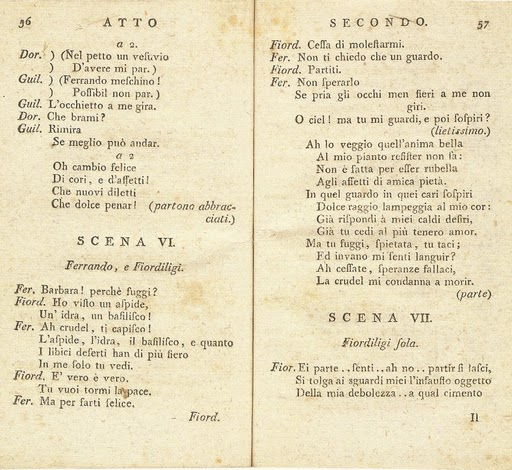 56 ATTO
a 2.
Dor. ) (Nel petto un veſuvio
) D'avere mi par.)
Guil. ) (Ferrando meſchino!
) Poſſibil non par.)
Guil. L'occhietto a me gira.
Dor. Che brami?
Guil. Rimira
Se meglio può andar.
a 2
Oh cambio felice
Di cori, e d'affetti!
Che nuovi diletti
Che dolce penar! (partono abbrac-
ciati.)
SCENA VI.
Ferrando, e Fiordiligi.
Fer. Barbara! perchè fuggi?
Fiord. Ho viſto un aſpide,
Un' idra, un baſiliſco!
Fer. Ah crudel, ti capiſco!
L'aſpide, l'idra, il baſiliſco, e quanto
I libici deſerti han di più fiero
In me ſolo tu vedi.
Fiord. E' vero è vero.
Tu vuoi tormi la pace.
Fer. Ma per farti felice.
Fiord.
SECONDO. 57
Fiord. Ceſſa di moleſtarmi.
Fer. Non ti chiedo che un guardo.
Fiord. Partiti.
Fer. Non ſperarlo
Se pria gli occhi men fieri a me non
giri.
O ciel! ma tu mi guardi, e poi ſoſpiri?
(lietiſſimo.)
Ah lo veggio quell'anima bella
Al mio pianto reſiſter non ſa:
Non è fatta per eſſer rubella
Agli affetti di amica pietà.
In quel guardo in quei cari ſoſpiri
Dolce raggio lampeggia al mio cor:
Già riſpondi à miei caldi deſiri,
Già tu cedi al più tenero amor.
Ma tu fuggi, ſpietata, tu taci;
Ed invano mi ſenti languir?
Ah ceſſate, ſperanze fallaci,
La crudel mi condanna a morir.
(parte)
SCENA VII.
Fiordiligi ſola.
Fior. Ei parte..ſenti..ah no..partir ſi laſci,
Si tolga ai sguardi miei l'infauſto oggetto
Della mia debolezza..a qual cimento
Il